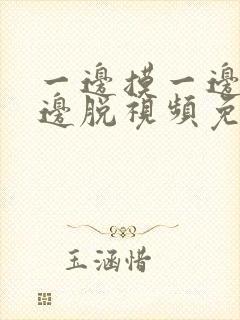 一邊摸一邊
邊脱視頻免
玉涵惜